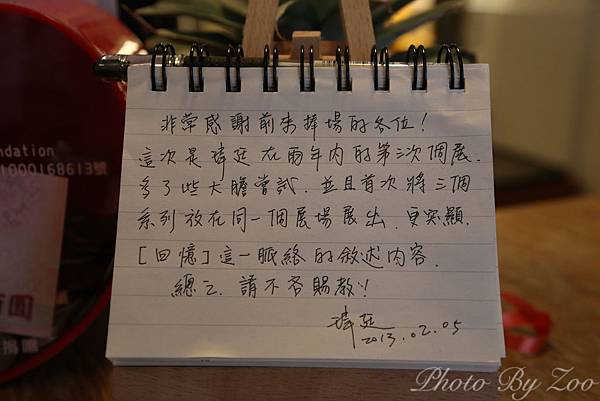 非常感謝前來捧場的各位！
這次是瑋廷在兩年內的第三次個展.
多了些大膽嘗試. 並且首次將三個
系列放在同一個展場展出. 更突顯.
[回憶] 這一脈絡的敘述內容.
總之. 請不吝賜教!!
瑋廷
2013.02.05
ndation
1000168613號
百圓
Photo By Zoo